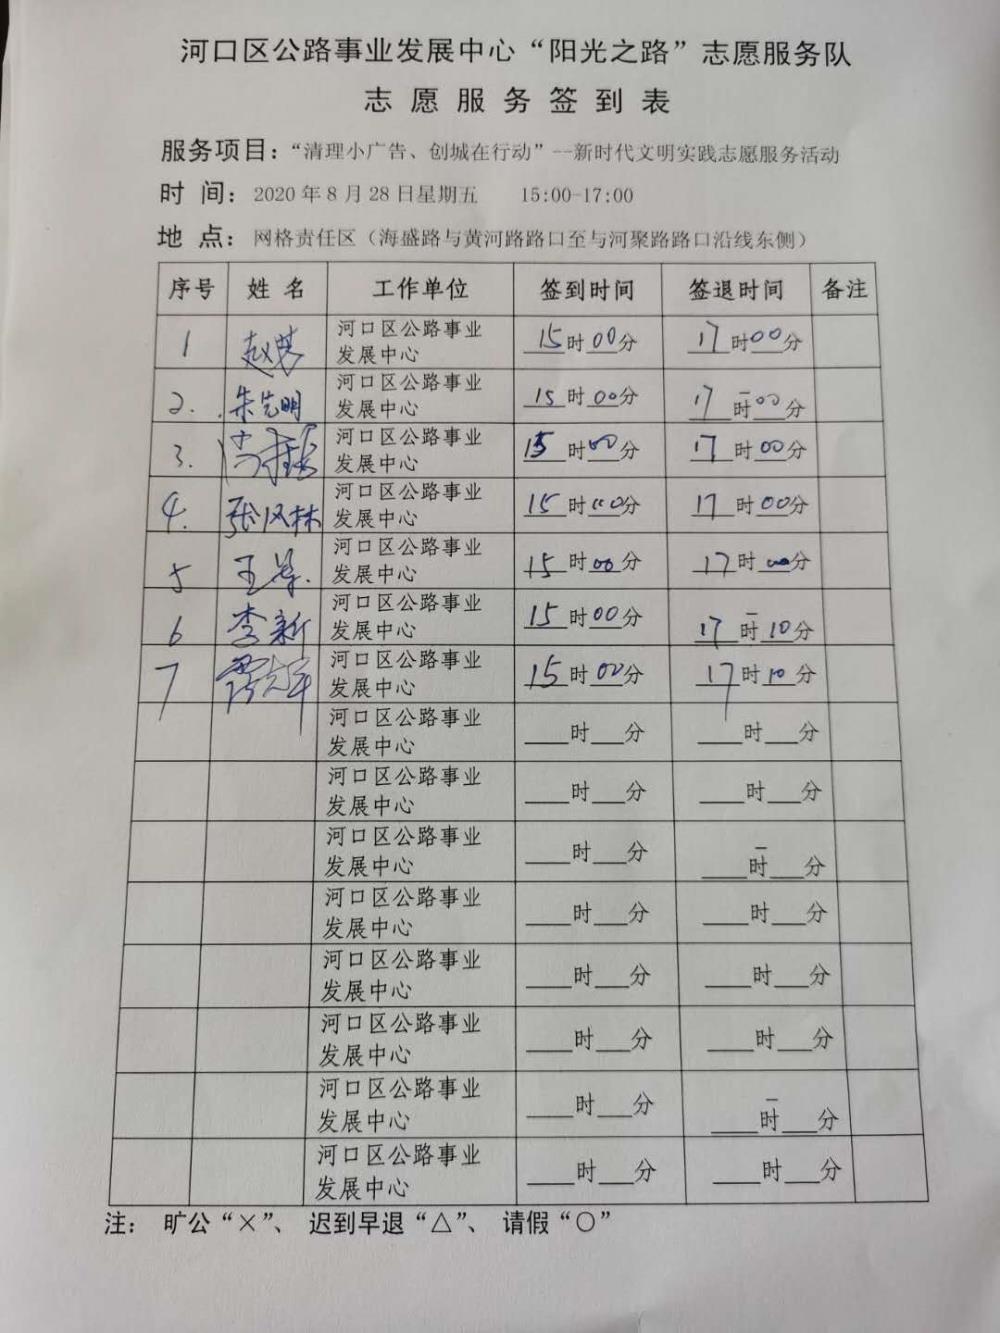 河口区公路事业发展中心“阳光之路”志愿服务队
志愿服务签到表
服务项目：“清理小广告、创城在行动”--新时代文明实践志愿服务活动
时 间：2020年8月28日星期五 15:00-17:00
地 点：网格责任区（海盛路与黄河路路口至与河聚路路口沿线东侧）
序号 姓名 工作单位 签到时间 签退时间 备注
1 河口区公路事业 15时00分 17时00分
发展中心
2. 朱先明 河口区公路事业 15时00分 17时00分
发展中心
3. 河口区公路事业 15时00分 17时00分
发展中心
4. 张风林 河口区公路事业 15时00分 17时00分
发展中心
5 河口区公路事业 15时00分 17时00分
发展中心
6 李新 河口区公路事业 15时00分 17时10分
发展中心
7 河口区公路事业 15时00分 17时10分
发展中心
河口区公路事业 ___时___分 ___时___分
发展中心
河口区公路事业 ___时___分 ___时___分
发展中心
河口区公路事业 ___时___分 ___时___分
发展中心
河口区公路事业 ___时___分 ___时___分
发展中心
河口区公路事业 ___时___分 ___时___分
发展中心
河口区公路事业 ___时___分 ___时___分
发展中心
河口区公路事业 ___时___分 ___时___分
发展中心
河口区公路事业 ___时___分 ___时___分
发展中心
注： 旷公“×”、 迟到早退“△”、 请假“○”